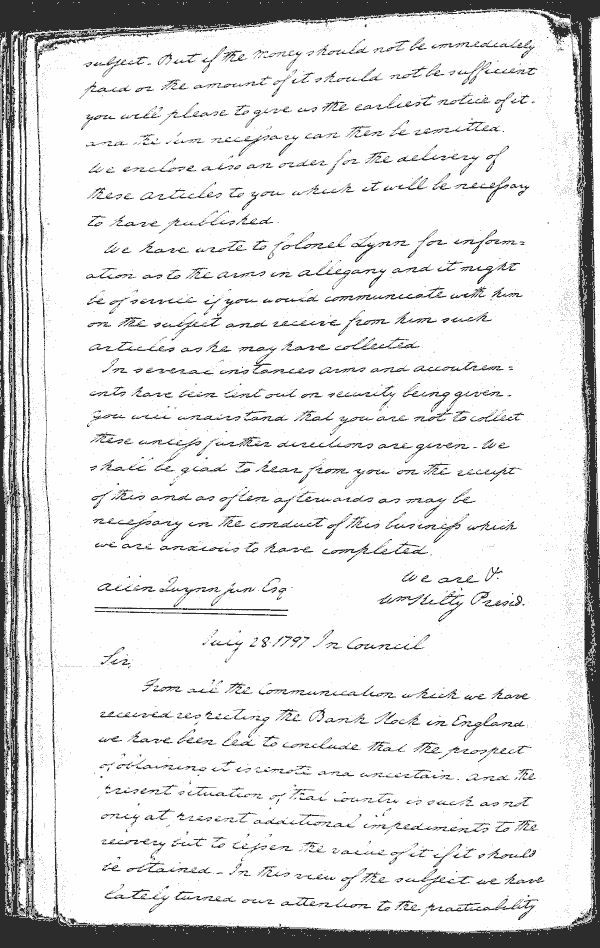 subject. But if the money should not be immediately
paid or the amount of it should not be sufficient
you will please to give us the earliest notice of it.
and the sum necessary can then be remitted.
We enclose also an order for the delivery of
these articles to you which it will be necessary
to have published.
We have wrote to Colonel Lynn for inform=
ation as to the arms in allegany and it might
be of service if you would communicate with him
on the subject and receive from him such
articles as he may have collected
In several instances arms and accoutrem=
ents have been lent out on security being given.
You will understand that you are not to collect
these unless further directions are given - We
shall be glad to hear from you on the receipt
of this and as often afterwards as may be
necessary in the conduct of this business which
we are anxious to have completed.
We are &.
Allen Quynn jun Esq
Wm Kilty Presid.
July 28 1797 In Council
Sir,
From all the communication which we have
received respecting the Bank Stock in England
we have been led to conclude that the prospect
of obtaining it is remote and uncertain. And the
present situation of that country is such as not
only at present additional impediments to the
recovery but to lessen the value of it if it should
be obtained - In this view of the subject we have
lately turned our attention to the practicability